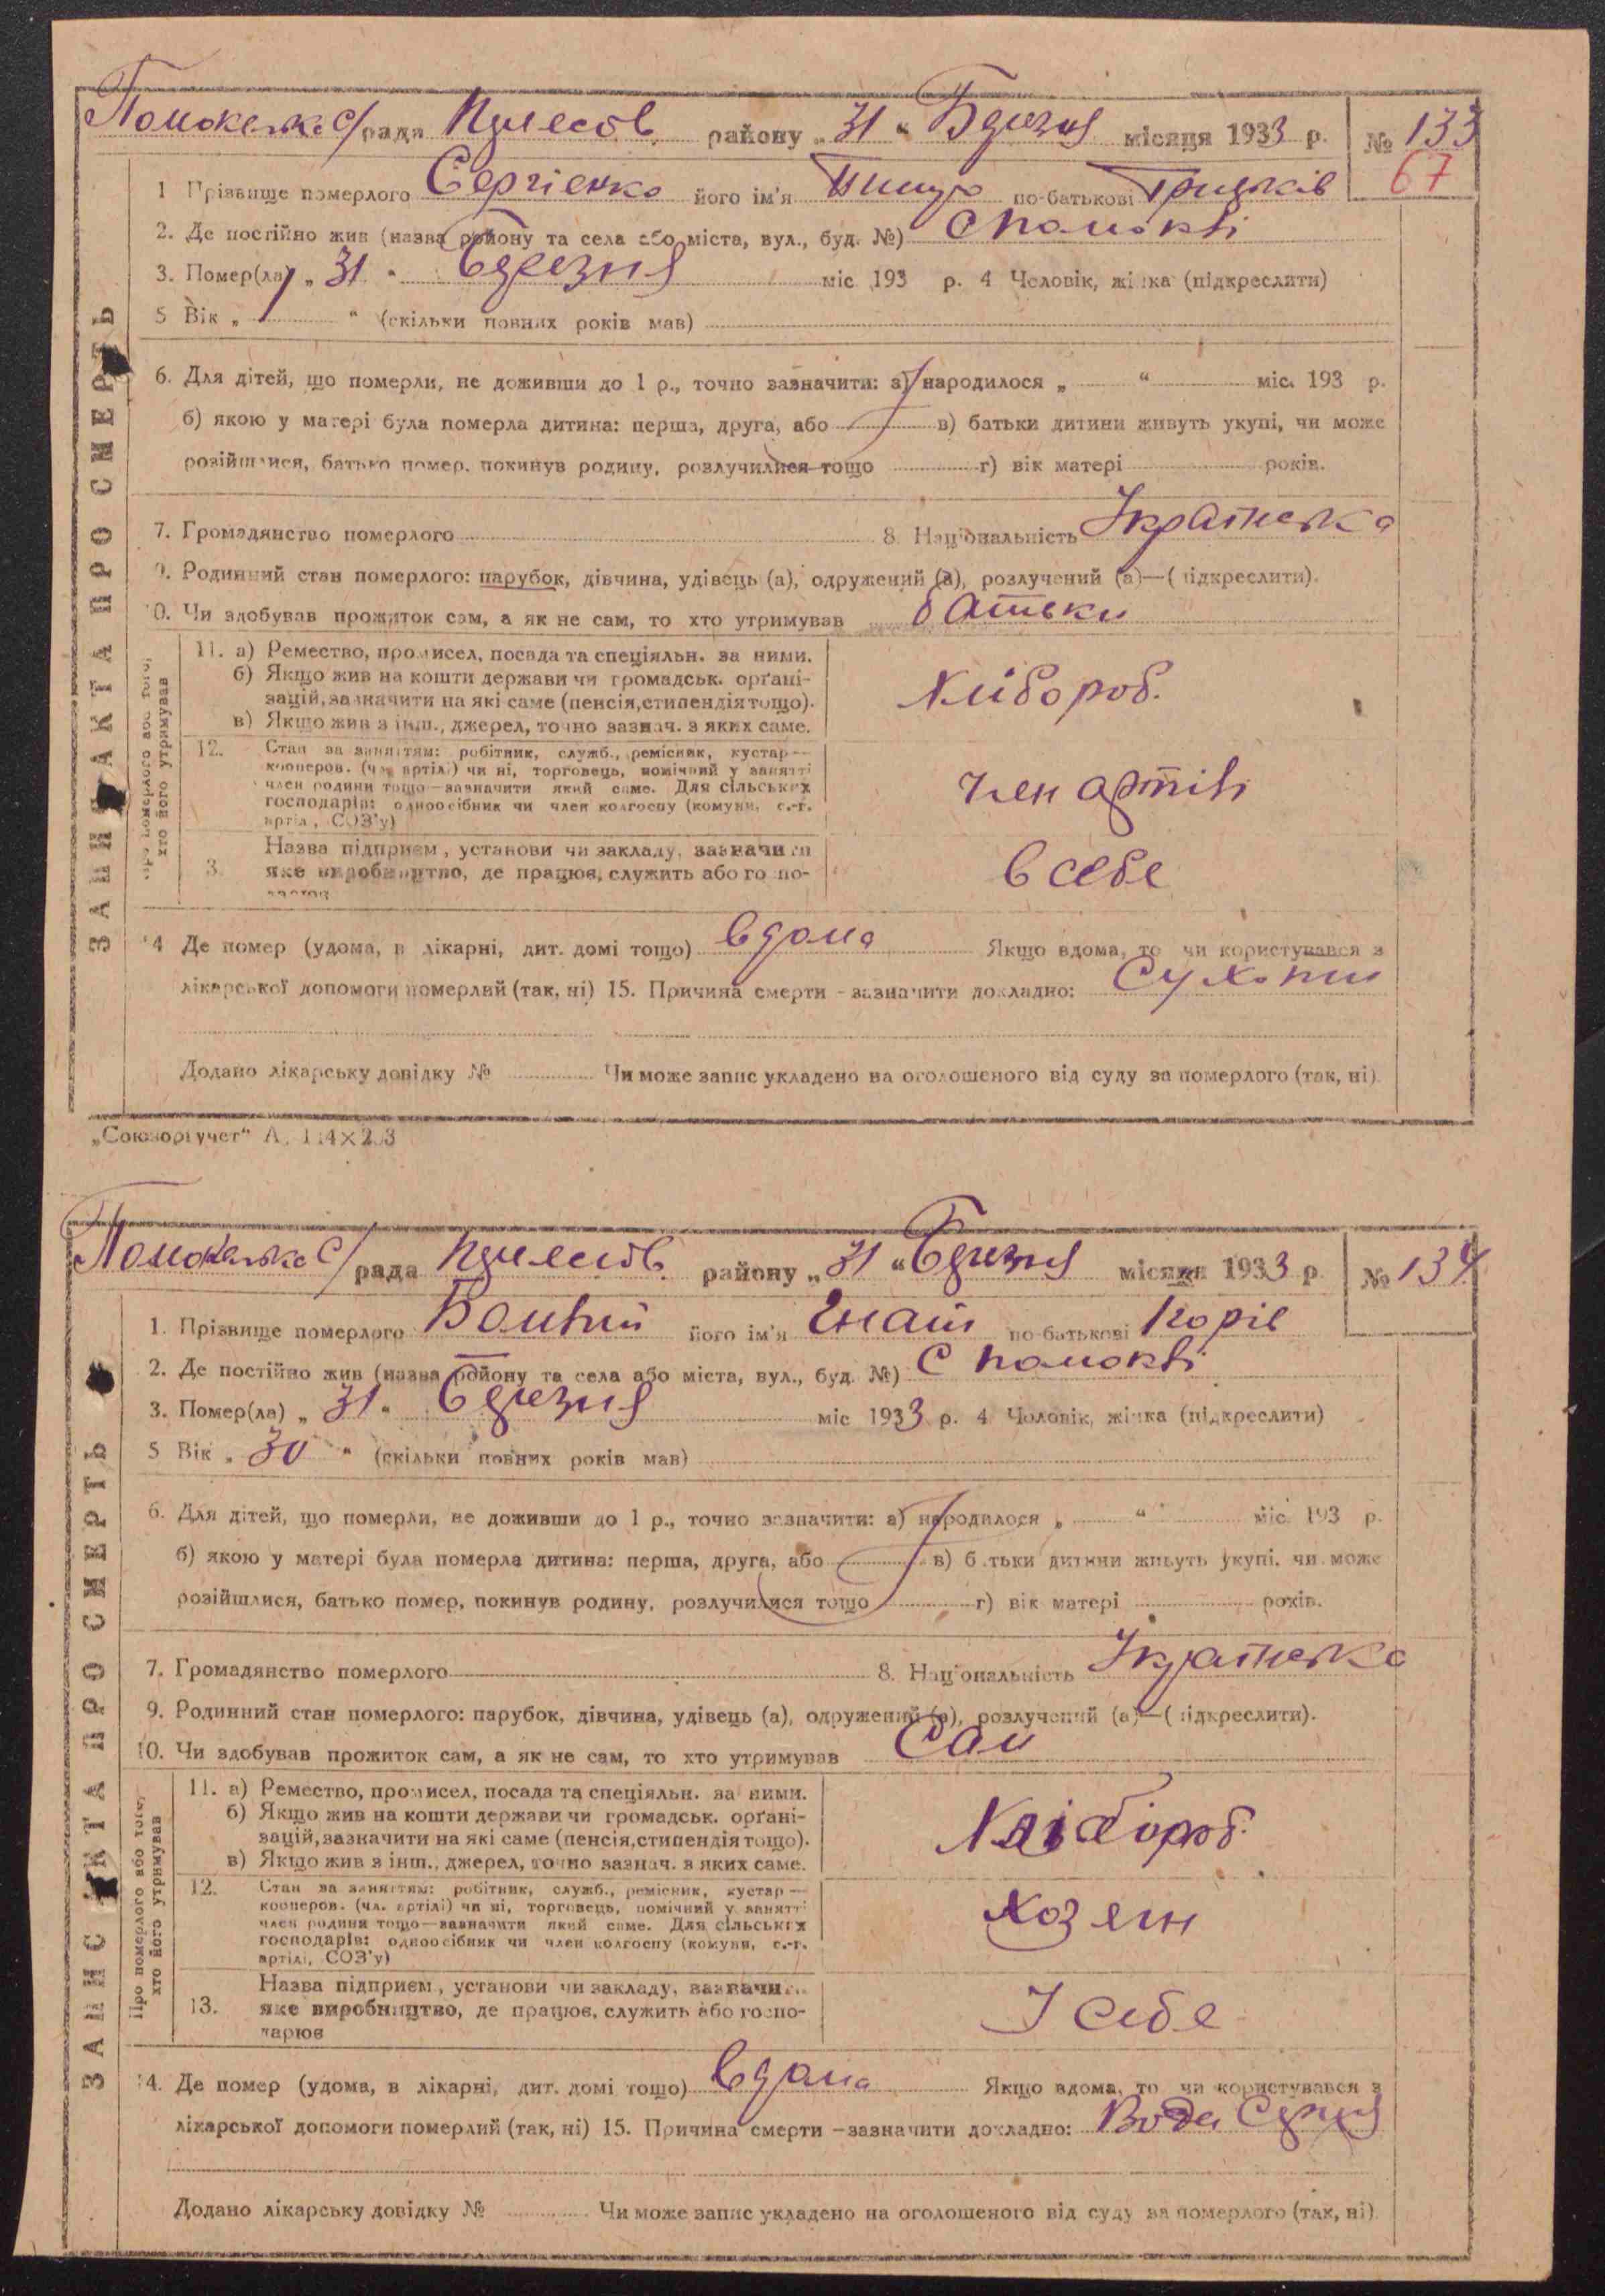 рада району „31“ Березня місяця 1933 р. № 133
67
1 Прізвище померлого Сергієнко його ім'я по-батькові Грицьків
2. Де постійно жив (назва району та села або міста, вул., буд. №) с
3. Помер(ла) „31“ Березня міс 193 р. 4 Чоловік, жінка (підкреслити)
5 Вік „ “ (скільки повних років мав)
6. Для дітей, що померли, не доживши до 1 р., точно зазначити: а) народилося „ “ міс. 193 р.
б) якою у матері була померла дитина: перша, друга, або в) батьки дитини живуть укупі, чи може
розійшлися, батько помер, покинув родину, розлучилися тощо г) вік матері років.
7. Громадянство померлого 8. Національність Українська
9. Родинний стан померлого: парубок, дівчина, удівець (а), одружений (а), розлучений (а)—(підкреслити).
10. Чи здобував прожиток сам, а як не сам, то хто утримував батьки
Про померлого або того,
хто його утримував
11. а) Ремество, промисел, посада та спеціяльн. за ними.
б) Якщо жив на кошти держави чи громадськ. орґані-
зацій, зазначити на які саме (пенсія, стипендія тощо).
в) Якщо жив з інш., джерел, точно зазнач. з яких саме.
Хлібороб.
12. Стан за заняттям: робітник, служб., ремісник, кустар—
кооперов. (чл. артілі) чи ні, торговець, помічний у занятті
член родини тощо—зазначити який саме. Для сільських
господарів: одноосібник чи член колгоспу (комуни, с.-г.
артілі, СОЗ'у)
член артілі
3. Назва підприєм., установи чи закладу, зазначити
яке виробництво, де працює, служить або госпо-
в себе
14 Де помер (удома, в лікарні, дит. домі тощо) вдома Якщо вдома, то чи користувався з
лікарської допомоги померлий (так, ні) 15. Причина смерти - зазначити докладно:
Додано лікарську довідку № Чи може запис укладено на оголошеного від суду за померлого (так, ні).
ЗАПИС АКТА ПРО СМЕРТЬ
„Союзоргучет“ А.
рада району „31“ Березня місяця 1933 р № 134
1. Прізвище померлого його ім'я Гнат по-батькові
2. Де постійно жив (назва району та села або міста, вул., буд. №) с
3. Помер(ла) „31“ Березня міс 1933 р. 4 Чоловік, жінка (підкреслити)
5 Вік „30“ (скільки повних років мав)
6. Для дітей, що померли, не доживши до 1 р., точно зазначити: а) народилося „ “ міс. 193 р.
б) якою у матері була померла дитина: перша, друга, або в) батьки дитини живуть укупі, чи може
розійшлися, батько помер, покинув родину, розлучилися тощо г) вік матері років.
7. Громадянство померлого 8. Національність Українська
9. Родинний стан померлого: парубок, дівчина, удівець (а), одружений (а), розлучений (а)—(підкреслити).
10. Чи здобував прожиток сам, а як не сам, то хто утримував Сам
Про померлого або того,
хто його утримував
11. а) Ремество, промисел, посада та спеціяльн. за ними.
б) Якщо жив на кошти держави чи громадськ. орґані-
зацій, зазначити на які саме (пенсія, стипендія тощо).
в) Якщо жив з інш., джерел, точно зазнач. з яких саме.
Хлібороб.
12. Стан за заняттям: робітник, служб., ремісник, кустар—
кооперов. (чл. артілі) чи ні, торговець, помічний у занятті
член родини тощо—зазначити який саме. Для сільських
господарів: одноосібник чи член колгоспу (комуни, с.-г.
артілі, СОЗ'у)
хозяїн
13. Назва підприєм., установи чи закладу, зазначити
яке виробництво, де працює, служить або госпо-
дарює
У себе
14. Де помер (удома, в лікарні, дит. домі тощо) вдома Якщо вдома, то чи користувався з
лікарської допомоги померлий (так, ні) 15. Причина смерти -зазначити докладно:
Додано лікарську довідку № Чи може запис укладено на оголошеного від суду за померлого (так, ні).
ЗАПИС АКТА ПРО СМЕРТЬ